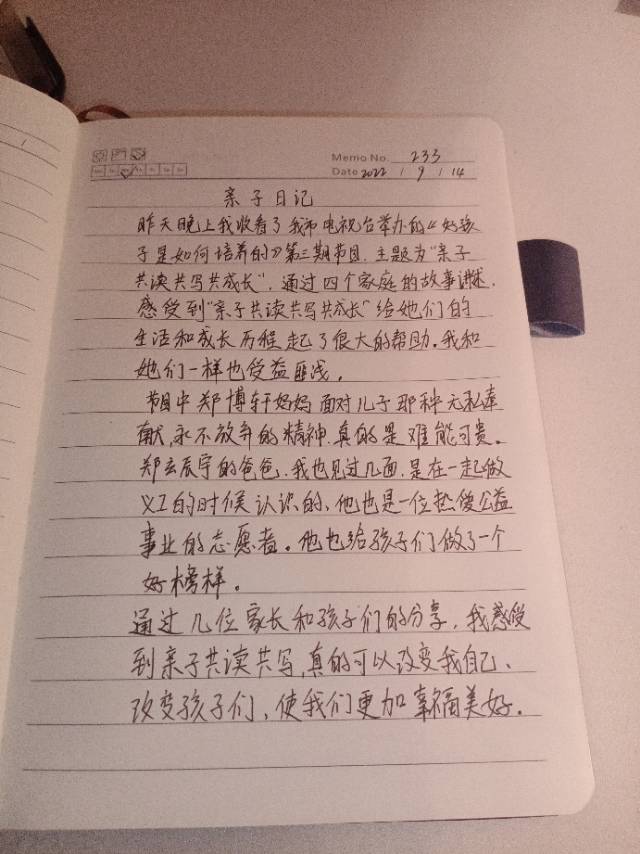 Memo No. 233
Date 2022 / 9 / 14
亲子日记
昨天晚上我收看了我市电视台举办的《好孩
子是如何培养的》第三期节目,主题为“亲子
共读共写共成长”,通过四个家庭的故事讲述,
感受到“亲子共读共写共成长”给她们的
生活和成长历程起了很大的帮助。我和
她们一样也受益匪浅。
节目中郑博轩妈妈面对儿子那种无私奉
献,永不放弃的精神,真的是难能可贵。
郑玄辰宇的爸爸,我也见过几面,是在一起做
义工的时候认识的、他也是一位热爱公益
事业的志愿者。他也给孩子们做了一个
好榜样。
通过几位家长和孩子们的分享,我感受
到亲子共读共写,真的可以改变我自己、
改变孩子们、使我们更加幸福美好。